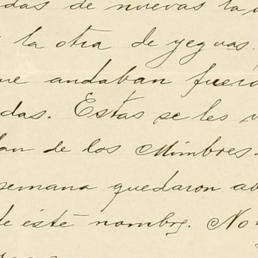 das de nuevas la
la otra de yeguas.
que andaban fuero
das. Estas se les v
an de los Mimbres.
semana quedaron ab
de este nombre. No